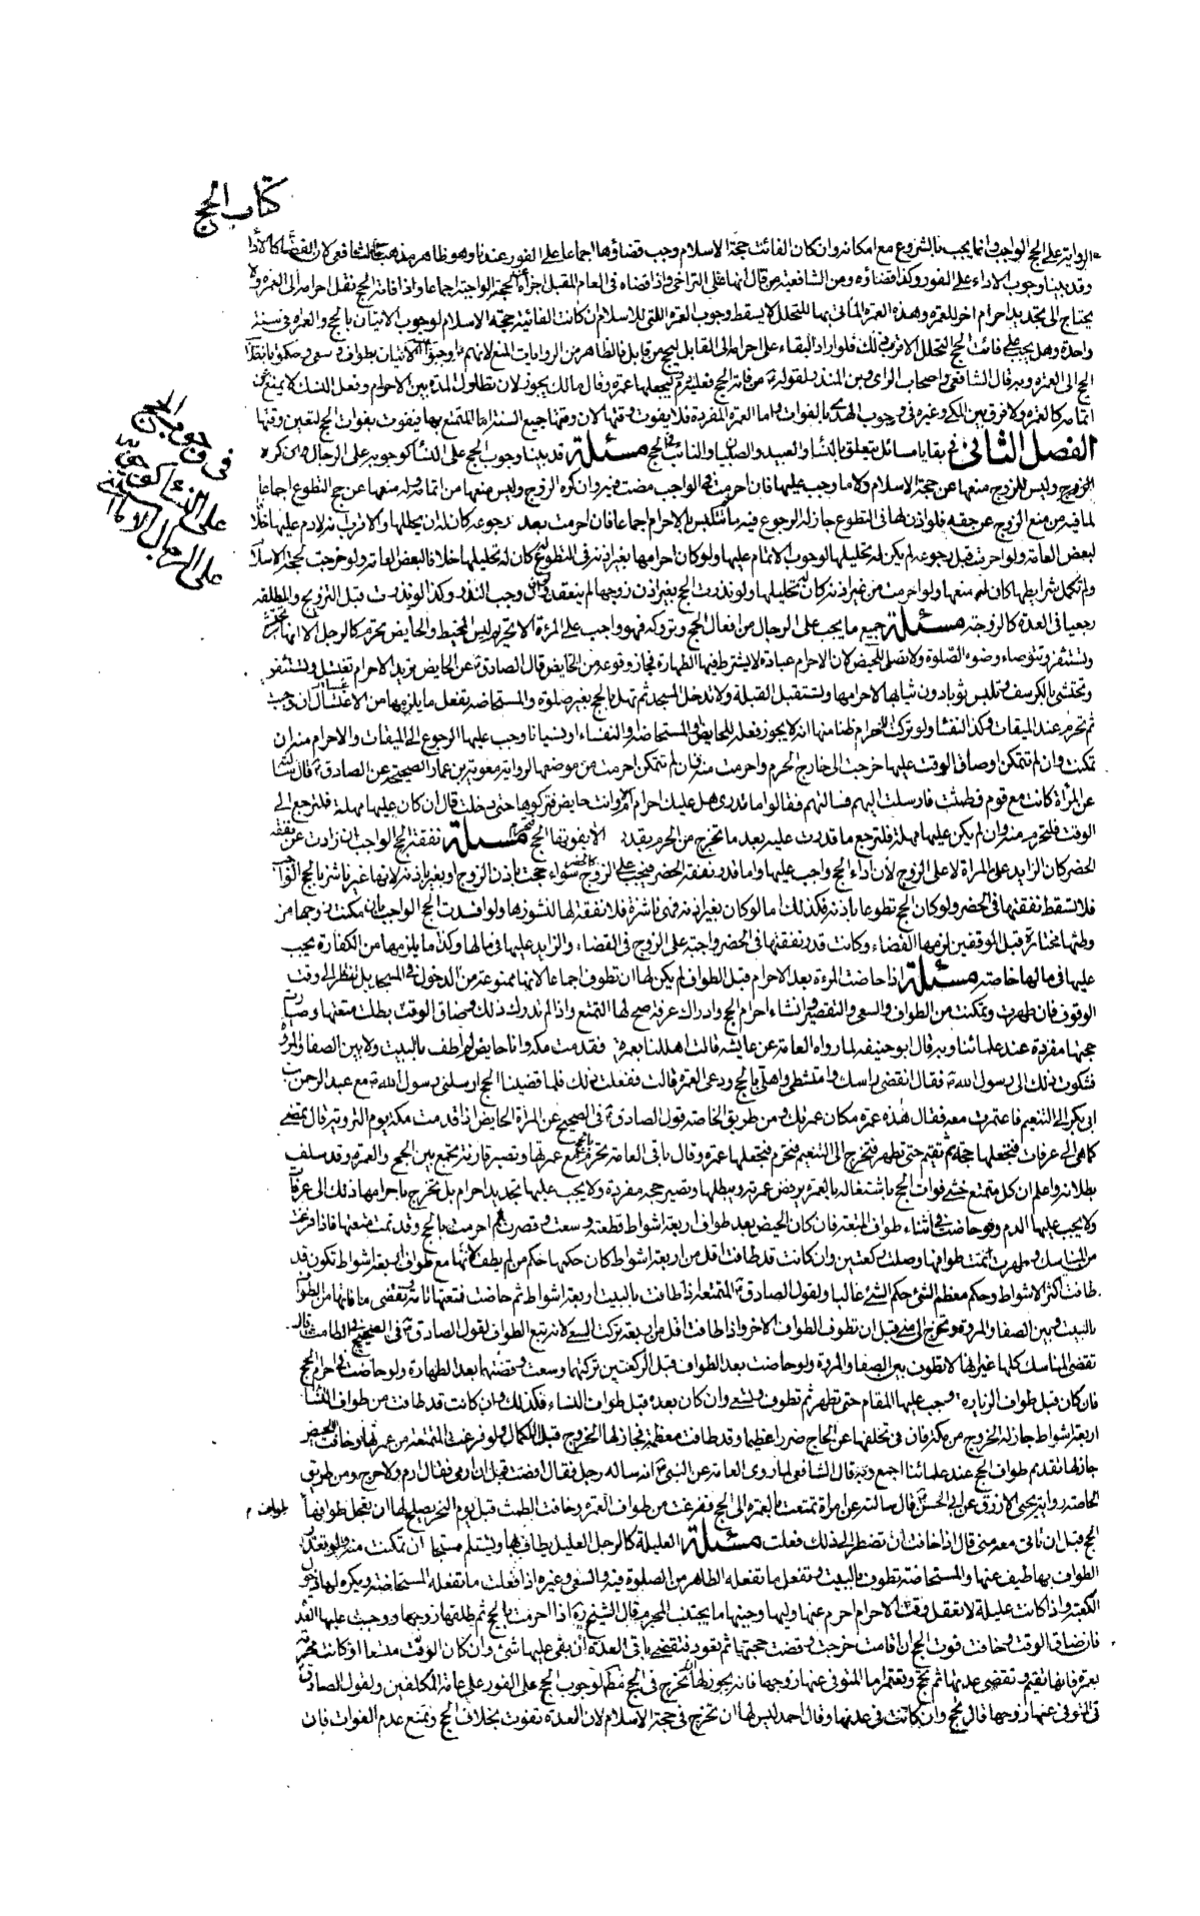 كتاب الحج
الرواية على الحج الواجب وانما يجب بالشروع مع امكانه وان كان الفائت حجة الاسلام وجب قضاؤها اجماعا على الفور عندنا وهو ظاهر مذهب الشافعى لان القضاء كالأداء
وقد بينا وجوب الاداء على الفور وكذا قضاؤه ومن الشافعية من قال انها على التراخى واذا قضاه فى العام المقبل اجزأه عن الحجة الواجبة اجماعا واذا فاته الحج نقل احرامه الى العمرة ولا
يحتاج الى تجديد احرام اخر للعمرة وهذه العمرة المأتى بها للتحلل لا يسقط وجوب العمرة التى للاسلام ان كانت الفائتة حجة الاسلام لوجوب الاتيان بالحج والعمرة فى سنة
واحدة وهل يجب على فائت الحج التحلل الاقرب ذلك فلو اراد البقاء على احرامه الى القابل ليحج من قابل فالظاهر من الروايات المنع لانهم ع اوجبوا الاتيان بطواف وسعى
الحج الى العمرة وبه قال الشافعى واصحاب الراى وابن المنذر لقوله ع من فاته الحج فعليه دم وليجعلها عمرة وقال مالك يجوز لان تطاول المدة بين الاحرام وفعل النسك لا يمنع من
اتمامه كالعمرة ولا فرق بين المكى وغيره فى وجوب الهدى بالفوات واما العمرة المفردة فلا يفوت وقتها لان وقتها جميع السنة اما المتمتع بها فيفوت بفوات الحج لتعين وقتها
الفصل الثانى فى بقايا مسائل يتعلق بالنساء والعبيد والصبيان والنائب فى الحج مسئلة قد بينا وجوب الحج على النساء كوجوبه على الرجال وان كره
فى وجوب الحج
على النساء كوجوبه
على الرجال
الزوج وليس للزوج منعها عن حجة الاسلام ولا ما وجب عليها فان احرمت فى الواجب مضت فيه وان كره الزوج وليس له منعها من اتمامه وله منعها عن حج التطوع اجماعا
لما فيه من منع الزوج عن حقه فلو اذن لها فى التطوع جاز له الرجوع فيه ما لم تتلبس بالاحرام اجماعا فان احرمت بعد رجوعه كان له ان يحللها والاقرب انه لا دم عليها خلافا
لبعض العامة ولو احرمت قبل رجوعه لم يكن له تحليلها لوجوب الاتمام عليها ولو كان احرامها بغير اذنه فى التطوع كان له تحليلها خلافا لبعض العامة ولو خرجت لحجة الاسلام
ولم تكمل شرايطها كان له منعها ولو احرمت من غير اذنه كان له تحليلها ولو نذرت الحج بغير اذن زوجها لم ينعقد ولو اذن وجب النذر وكذا لو نذرت قبل التزويج والمطلقة
رجعيا فى العدة كالزوجة مسئلة جميع ما يجب على الرجال من افعال الحج وتروكه فهو واجب على المرئة الا تحريم لبس المخيط والحايض محرمة كالرجل الا انها تحتشى
وتستثفر وتتوضاء وضوء الصلوة ولا تصلى للحيض لان الاحرام عبادة لا يشترط فيها الطهارة فجاز وقوعه من الحايض قال الصادق ع عن الحايض تريد الاحرام تغتسل وتستثفر
وتحتشى بالكرسف وتلبس ثوبا دون ثيابها لاحرامها وتستقبل القبلة ولا تدخل المسجد ثم تهل بالحج بغير صلوة والمستحاضة تفعل ما يلزمها من الاغتسال ان وجب
ثم تحرم عند الميقات وكذا النفساء ولو تركت الاحرام ظنا منها انه لا يجوز فعله للحايض والمستحاضة والنفساء او نسيانا وجب عليها الرجوع الى الميقات والاحرام منه ان
تمكنت وان لم تتمكن او ضاق الوقت عليها خرجت الى خارج الحرم واحرمت منه فان لم تتمكن احرمت من موضعها لرواية معوية بن عمار الصحيحة عن الصادق ع قال سألته
عن المرأة كانت مع قوم فطمثت فارسلت اليهم فسالتهم فقالوا ما ندرى هل عليك احرام ام لا وانت حايض فتركوها حتى دخلت قال ان كان عليها مهلة فلترجع الى
الوقت فلتحرم منه وان لم يكن عليها مهلة فلترجع ما قدرت عليه بعد ما تخرج من الحرم بقدر الا يفوتها الحج فتحرم مسئلة نفقة الحج الواجب ان زادت عن نفقة
الحضر كان الزايد على المراة لا على الزوج لأن اداء الحج واجب عليها واما قدر نفقة الحضر فيجب على الزوج كالحضر سواء حجت باذن الزوج او بغير اذنه لانها غير ناشز بالحج الواجب
فلا تسقط نفقتها فى الحضر ولو كان الحج تطوعا باذنه فكذلك اما لو كان بغير اذنه فهى ناشزة فلا نفقة لها لنشوزها ولو افسدت الحج الواجب بان مكنت زوجها من
وطئها مختارة قبل الموقفين لزمها القضاء وكانت قدر نفقتها فى الحضر واجبة على الزوج فى القضاء والزايد عليها فى مالها وكذا ما يلزمها من الكفارة يجب
عليها فى مالها خاصة مسئلة اذا حاضت المرءة بعد الاحرام قبل الطواف لم يكن لها ان تطوف اجماعا لانها ممنوعة من الدخول فى المسجد بل تنتظر الى وقت
الوقوف فان طهرت وتمكنت من الطواف والسعى والتقصير وانشاء احرام الحج وادراك عرفة صح لها التمتع واذا لم تدرك ذلك وضاق الوقت بطلت متعتها وصارت
حجتها مفردة عند علمائنا وبه قال ابو حنيفة لما رواه العامة عن عايشة قالت اهللنا بعمرة فقدمت مكة وانا حايض لم اطف بالبيت ولا بين الصفا والمروة
فشكوت ذلك الى رسول الله ص فقال انقضى راسك وامتشطى واهلى بالحج ودعى العمرة قالت ففعلت ذلك فلما قضينا الحج ارسلنى رسول الله ص مع عبد الرحمن بن
ابى بكر الى التنعيم فاعتمرت معه فقال هذه عمرة مكان عمرتك ومن طريق الخاصة قول الصادق ع فى الصحيح عن المراة الحايض اذا قدمت مكة يوم التروية قال تمضى
كما هى الى عرفات فتجعلها حجة ثم تقيم حتى تطهر فتخرج الى التنعيم فتحرم فتجعلها عمرة وقال باقى العامة تحرم بالحج مع عمرتها وتصير قارنة تجمع بين الحج والعمرة وقد سلف
بطلانه واعلم ان كل متمتع خشى فوات الحج باشتغاله بالعمرة يرفض عمرته ويبطلها وتصير حجة مفردة ولا يجب عليها تجديد احرام بل تخرج باحرامها ذلك الى عرفات
ولا يجب عليها الدم ولو حاضت فى اثناء طواف المتعة فان كان الحيض بعد طواف اربعة اشواط قطعته وسعت وقصرت ثم احرمت بالحج وقد تمت متعتها فاذا فرغت
من المناسك وطهرت اتمت طوافها وصلت ركعتين وان كانت قد طافت اقل من اربعة اشواط كان حكمها حكم من لم يطف لأنها مع طواف اربعة اشواط تكون قد
طافت اكثر الاشواط وحكم معظم الشئ حكم الشئ غالبا ولقول الصادق ع المتمتعة اذا طافت بالبيت اربعة اشواط ثم حاضت فمتعتها تامة وتقضى ما فاتها من الطواف
بالبيت وبين الصفا والمروة وتخرج الى منى قبل ان تطوف الطواف الاخر واذا طافت اقل من اربعة تركت السعى لانه تبع الطواف لقول الصادق ع فى الصحيح فى الطامث قال
تقضى المناسك كلها غير انها لا تطوف بين الصفا والمروة ولو حاضت بعد الطواف قبل الركعتين تركتهما وسعت وقضتهما بعد الطهارة ولو حاضت فى احرام الحج
فان كان قبل طواف الزيارة وجب عليها المقام حتى تطهر ثم تطوف وتسعى وان كان بعده قبل طواف النساء فكذلك وان كانت قد طافت من طواف النساء
اربعة اشواط جاز لها الخروج من مكة فان فى تخلفها عن الحاج ضررا عظيما وقد طافت معظمه فجاز لها الخروج قبل الاكمال ولو فرغت المتمتعة من عمرتها وخافت الحيض
جاز لها تقديم طواف الحج عند علمائنا اجمع وبه قال الشافعى لما روى العامة عن النبى ص انه ساله رجل فقال افضت قبل ان ارمى فقال ارم ولا حرج ومن طريق
الخاصة رواية يحيى الازرق عن ابى الحسن ع قال سالته عن امراة تمتعت بالعمرة الى الحج ففرغت من طواف العمرة وخافت الطمث قبل يوم النحر يصلح لها ان تعجل طوافها
طواف
الحج قبل ان تاتى منى قال اذا خافت ان تضطر الى ذلك فعلت مسئلة العليلة كالرجل العليل يطاف بها ويستلم مستحبا ان تمكنت منه ولو تعذر
الطواف بها طيف عنها والمستحاضة تطوف بالبيت وتفعل ما تفعله الطاهر من الصلوة فيه والسعى وغيره اذا فعلت ما تفعله المستحاضة ويكره لها دخول
الكعبة واذا كانت عليلة لا تعقل وقت الاحرام احرم عنها وليها وجنبها ما يجتنب المحرم قال الشيخ ره اذا احرمت بالحج ثم طلقها زوجها ووجبت عليها العدة
فان ضاق الوقت وخافت فوت الحج ان اقامت خرجت وقضت حجتها ثم تعود فتقضى باقى العدة ان بقى عليها شئ وان كان الوقت متسعا او كانت محرمة
بعمرة فانها تقيم وتقضى عدتها ثم تحج وتعتمر اما المتوفى عنها زوجها فانه يجوز لها ان تخرج فى الحج مطلقا لوجوب الحج على الفور على عامة المكلفين ولقول الصادق ع
فى المتوفى عنها زوجها قال تحج وان كانت فى عدتها وقال احمد ليس لها ان تخرج فى حجة الاسلام لان العدة تفوت بخلاف الحج ونمنع عدم الفوات فان